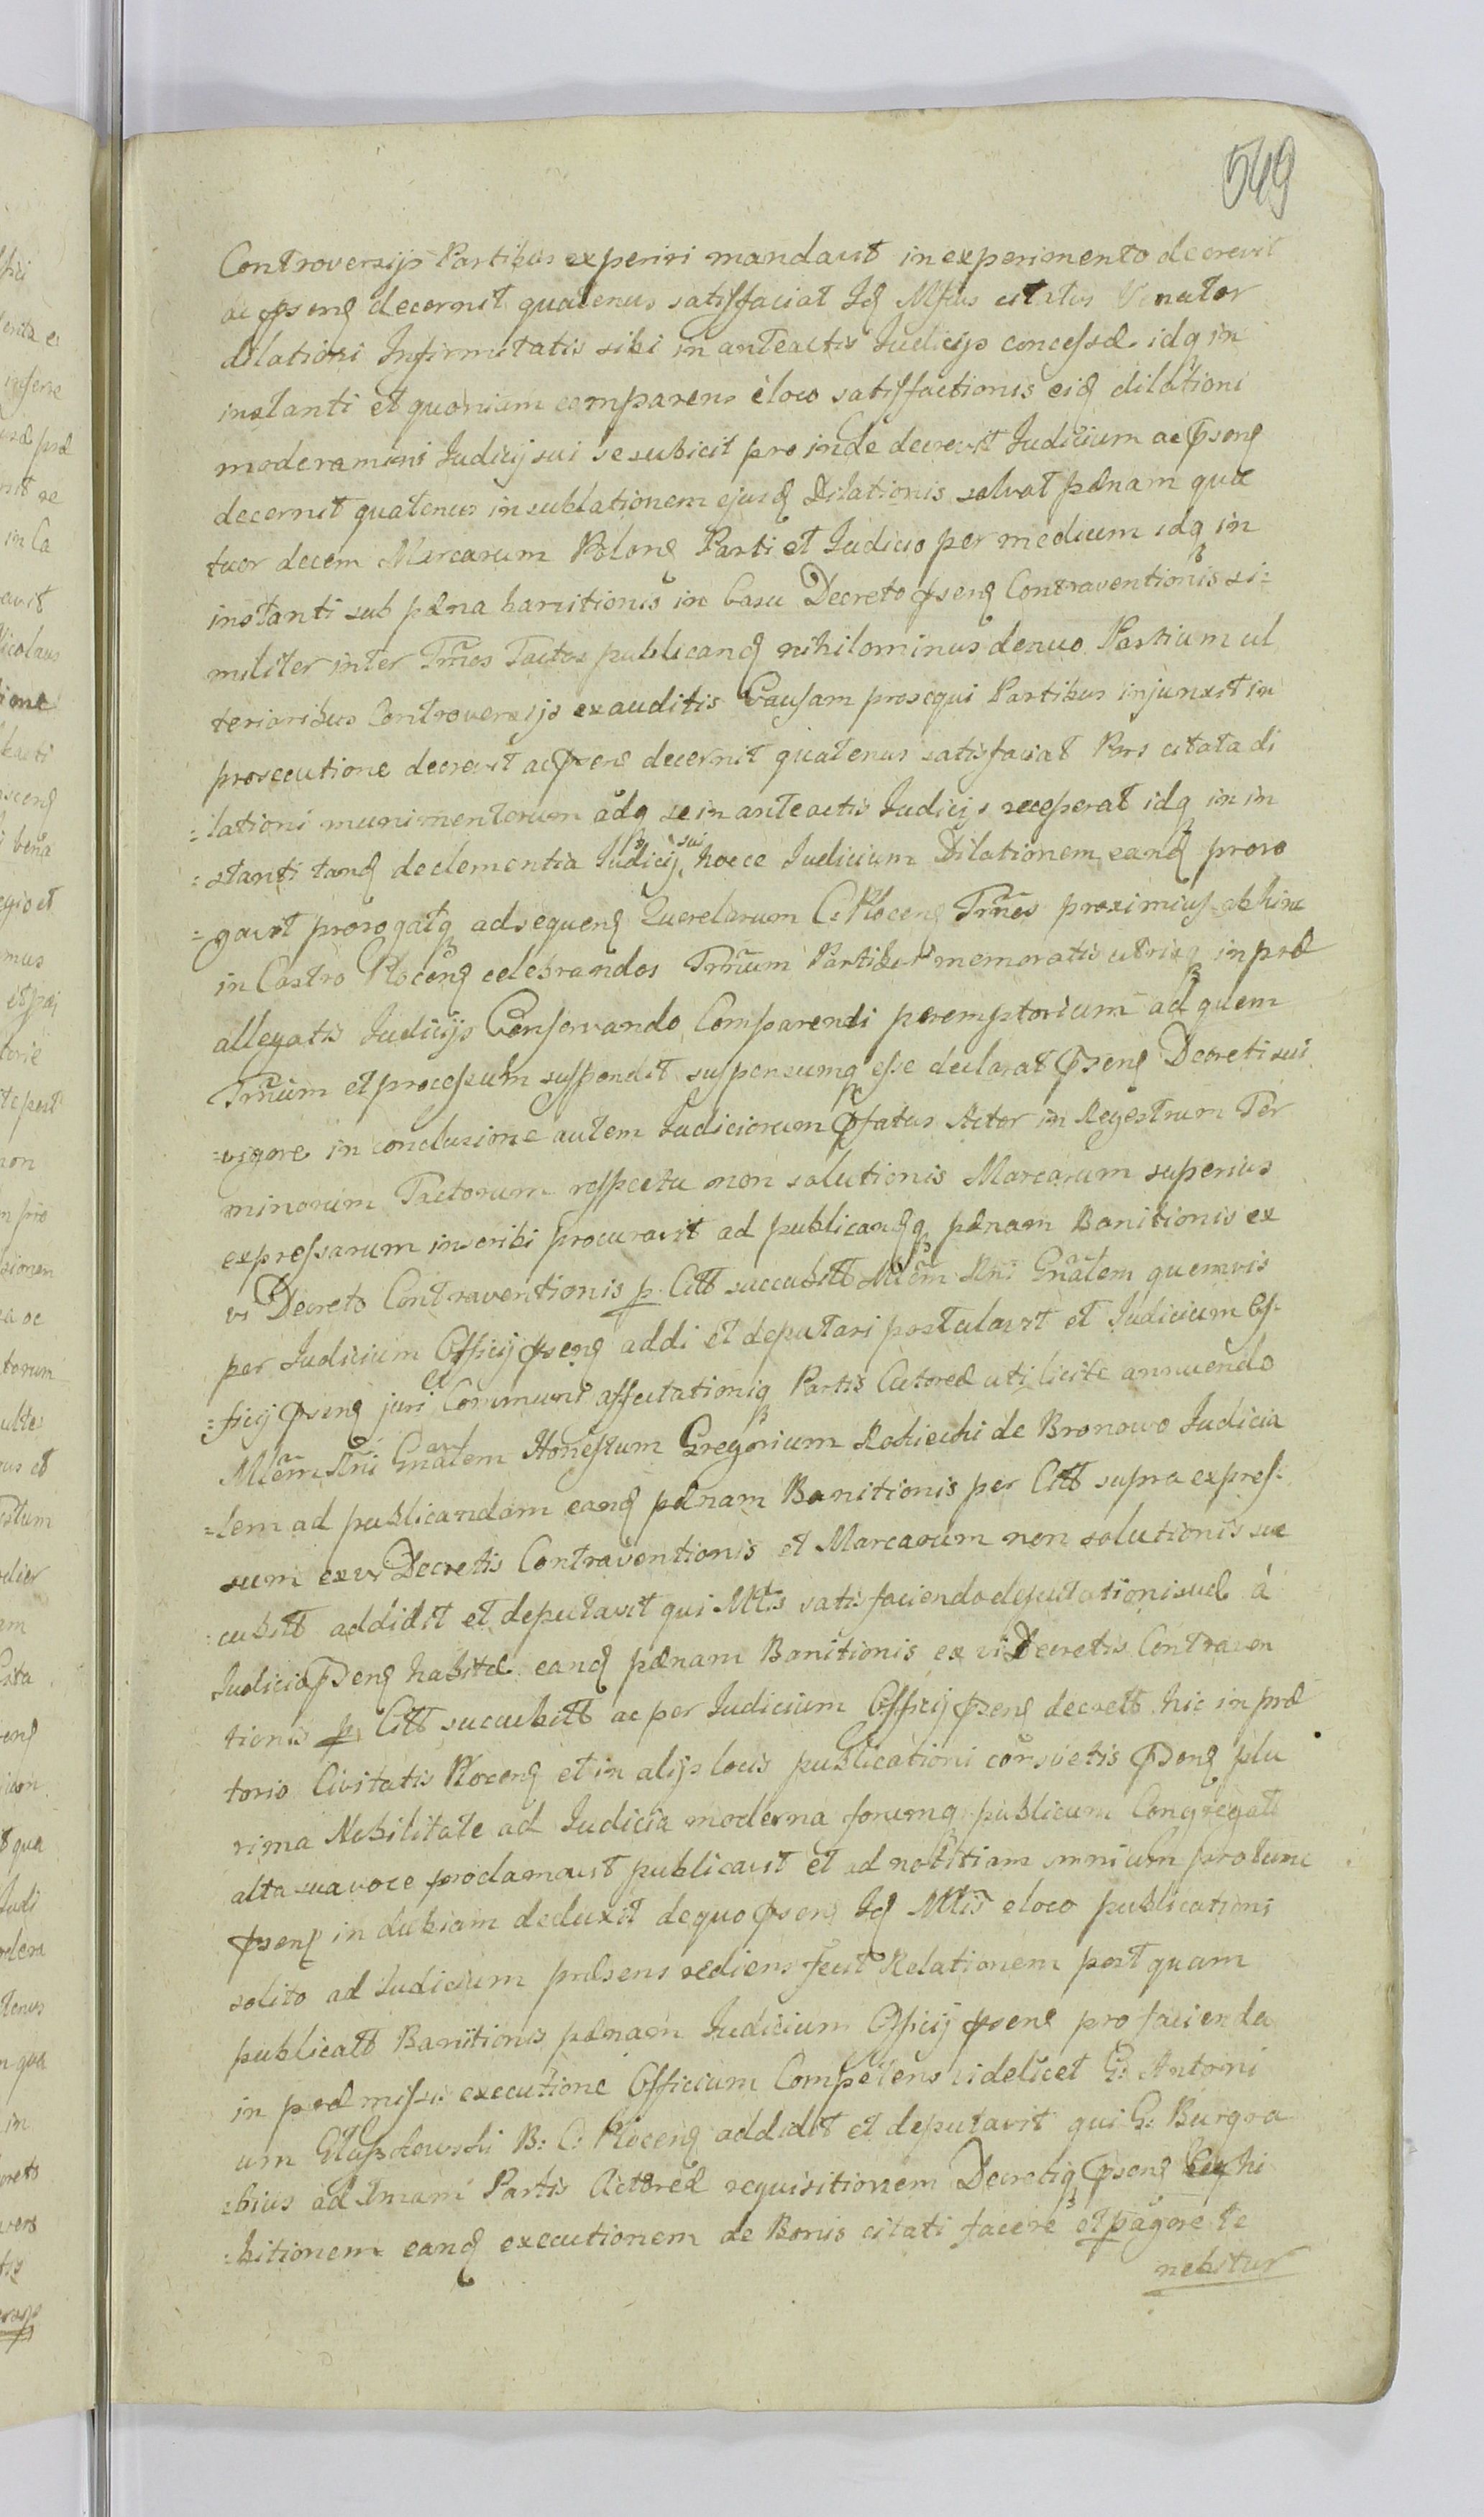 549
Controversijs Partibus experiri mandavit in experimento decrevit
ac pseng decernit quatenus satisfaciat Id Mfcus citatus Venator
dilationi Infirmitatis sibi in anteactis Judicijs concessæ idq in
instanti et quoniam comparens èloco satisfactionis eid dilationi
moderamini Judicij sui se subicit pro inde decrevit Judicium ac pseng
decernit quatenus in sublationem ejusd Dilationis solvat pænam qua
tuor decem Marcarum Polong Parti et Judicio per medium idq in
instanti sub pæna banitionis in Casu Decreto pseng Contraventionis si=
militer inter Trnos Tactos publicand nihilominus denuo Partium ul
terioribus Controversijs exauditis Causam prosequi Partibus injunxit in
prosecutione decrevit ac pseng decernit quatenus satisfaciat Pars citata di
=lationi munimentorum adq se in anteactis Judicijs receperat idq in in
=stanti tand declementia Judicij sui hocce Judicium Dilationem eand proro
=gavit prorogatq adsequeng Querelarum C: Ploceng Trnos proximius abhinc
in Castro Ploceng celebrandos Trnum Partibus memoratis utrisq in præ
allegatis Judicijs Conservando Comparendi peremptorium ad quem
Trnum et processum suspendit suspensumq esse declarat pseng Decreti sui
=vigore in conclusione autem Judiciorum pfatus Actor in Regestrum Ter
minorum Tactorum respectu non solutionis Marcarum superius
expressarum inscribi procuravit ad publicandq pænam Banitionis ex
vi Decreto Contraventionis p Citt succubitt Mlem Rni Gnalem quemvis
per Judicium Officij pseng addi et deputari postulavit et Judicium Of=
=ficij pseng juri et Communi affectationiq Partis Actoreæ uti licite annuendo
Mlem Rni Gnalem Honestum Gregorium Rokiecki de Bronowo Judicia
=lem ad publicandam eand pænam Banitionis per Citt supra expres=
sum ex vi Decretis Contraventionis et Marcarum non solutionis suc
=cubitt addidit et deputavit qui Mtis satisfaciendo deputationi suæ à
Judicio pseng habitæ eand pænam Banitionis ex vi Decretis Contraven
tionis p Citt sucubitt ac per Judicium Officij pseng decrett hic in præ
torio Civitatis Ploceng et in alijs locis publicationi consvetis pseng plu
rima Nobilitate ad Judicia moderna forumq publicum Congregatt
alta sua voce proclamavit publicavit et ad notitiam omnium protunc
pseng in dubiam deduxit dequo pseng Id Mtis eloco publicationi
solito ad Judicium præsens rediens fecit Relationem post quam
publicatt Banitionis pænam Judicium Officij pseng pro facienda
in præmissis executione Officium Competens videlicet G: Antoni
um B: C: Ploceng addidit et deputavit qui G: Burgra
=bius ad Imam Partis Actoreæ requisitionem Decretiq pseng
=bitionem eand executionem de Bonis citati facere et pagere te
nebitur